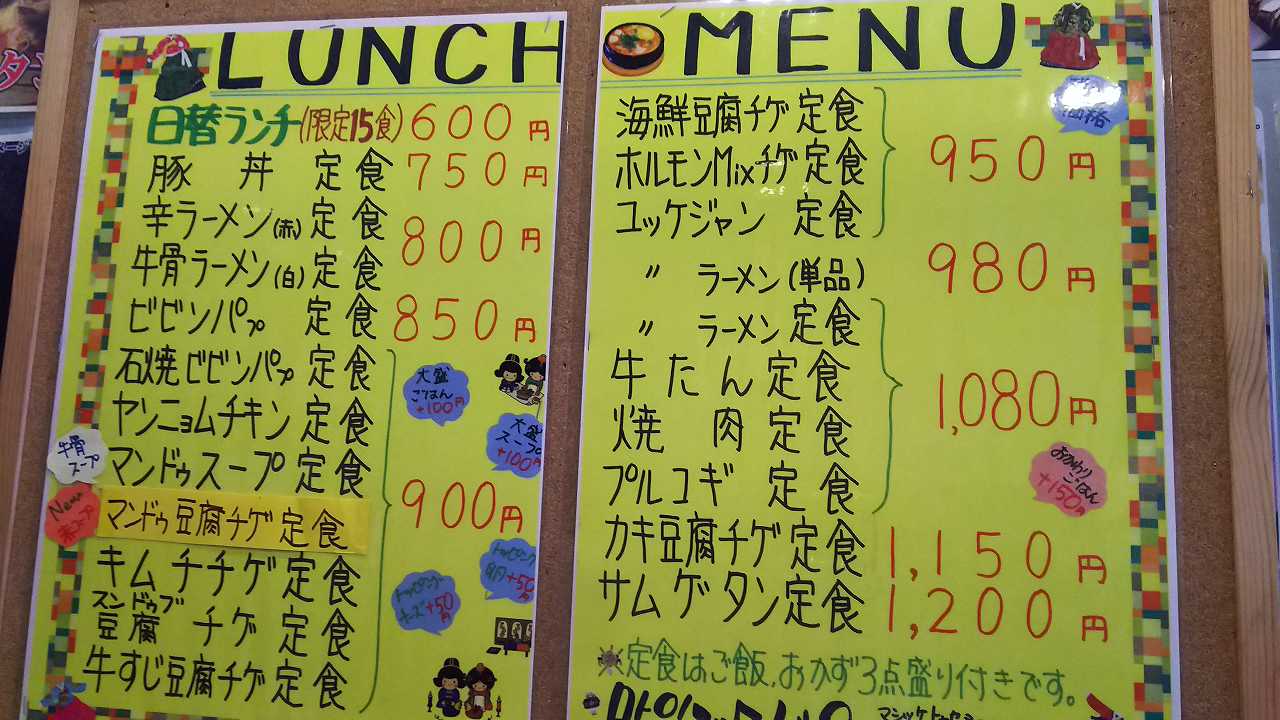 LUNCH
日替ランチ(限定15食) 600円
豚丼定食 750円
辛ラーメン(赤)定食
牛骨ラーメン(白)定食
800円
ビビンパプ 定食 850円
石焼ビビンパプ定食
ヤンニョムチキン定食
マンドゥスープ定食
マンドゥ豆腐チゲ定食
キムチチゲ定食
スンドゥブ
豆腐チゲ定食
牛すじ豆腐チゲ定食
900円
牛骨
スープ
New
大盛
ごはん
+100円
大盛
スープ
+100円
トッピング
+50円
トッピング
チーズ+50
円
MENU
海鮮豆腐チゲ定食
ホルモンMixチゲ定食
ユッケジャン 定食
950円
価格
〃 ラーメン(単品) 980円
〃 ラーメン定食
牛たん定食
焼肉定食
プルコギ定食
1,080円
おかわり
ごはん
+150円
カキ豆腐チゲ定食 1,150円
サムゲタン定食 1,200円
※定食はご飯,おかず3点盛り付きです。